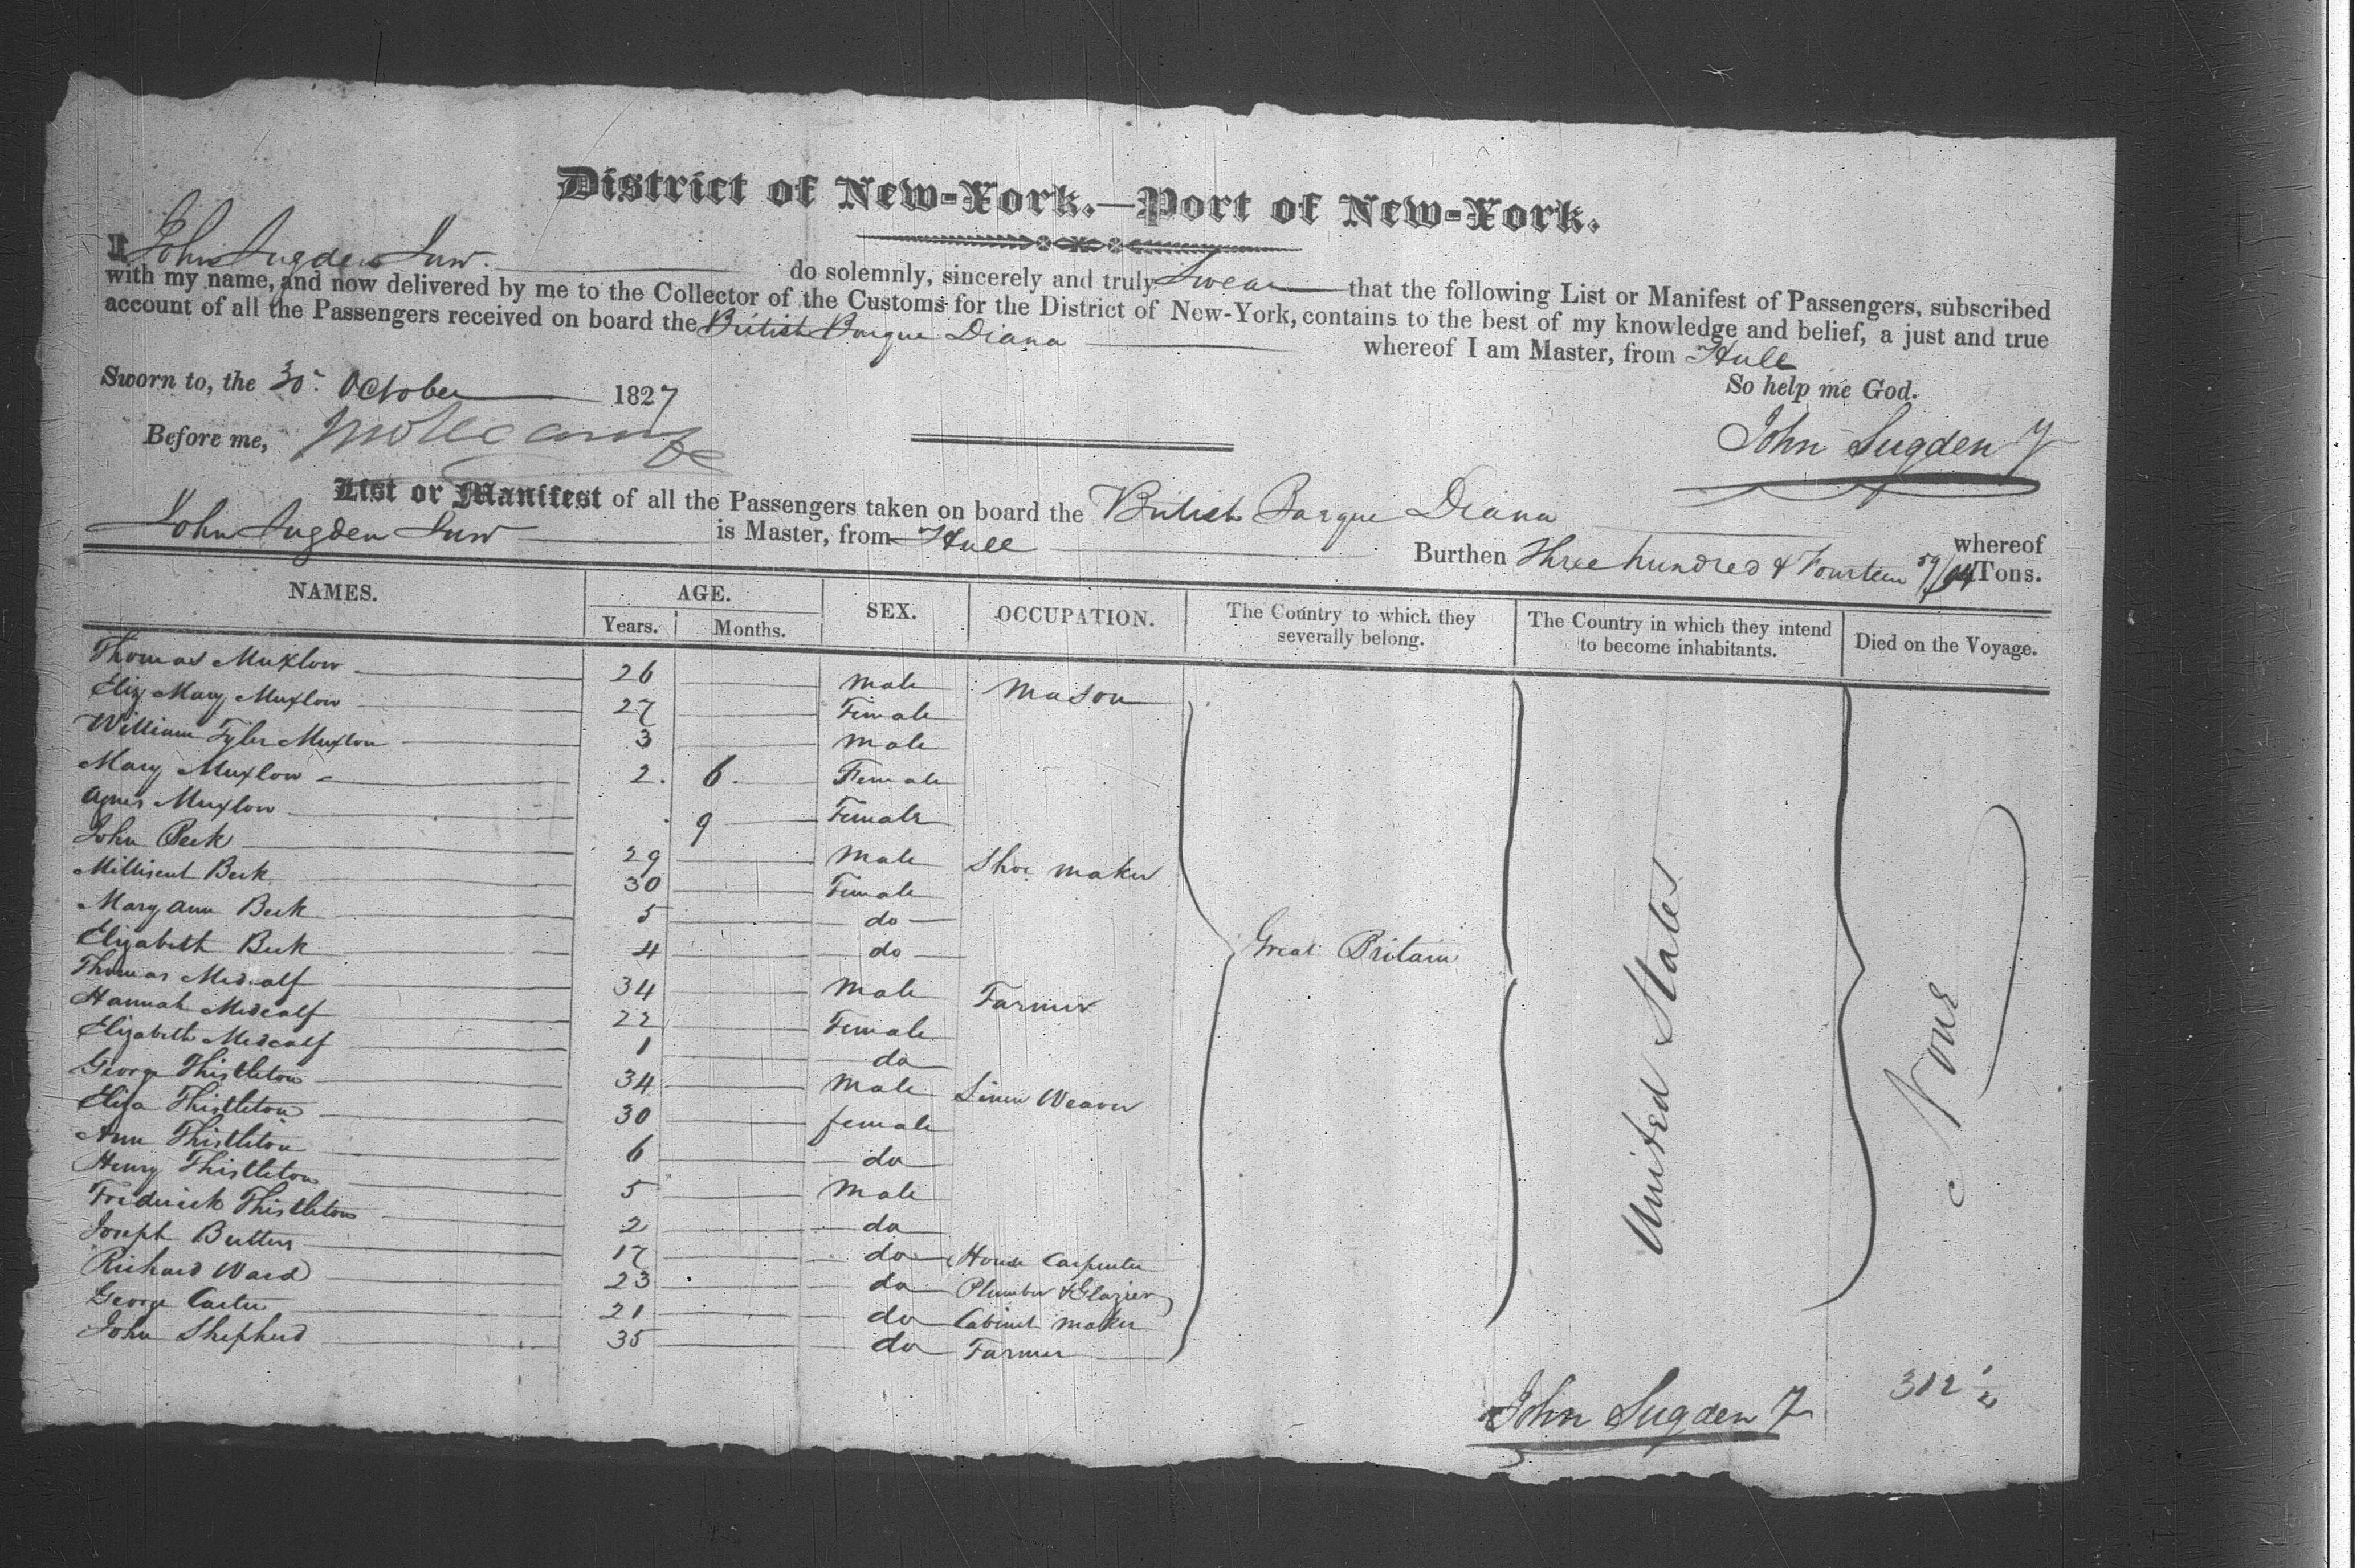 District of New-York.—Port of New-York.
I John Sugden Junr. do solemnly, sincerely and truly Swear that the following List or Manifest of Passengers, subscribed
with my name, and now delivered by me to the Collector of the Customs for the District of New-York, contains to the best of my knowledge and belief, a just and true
account of all the Passengers received on board the British Barque Diana whereof I am Master, from Hull
Sworn to, the 30. October 1827 So help me God.
Before me, John Sugden J
List or Manifest of all the Passengers taken on board the British Barque Diana whereof
John Sugden Junr is Master, from Hull Burthen Three hundred & Fourteen 59/94 Tons.
NAMES. AGE. SEX. OCCUPATION. The Country to which they severally belong. The Country in which they intend to become inhabitants. Died on the Voyage.
Years. Months.
Thomas Muxlow 26 male Mason
Eliz Mary Muxlow 27 Female
William Tyler Muxlow 3 male
Mary Muxlow 2. 6. Female
Agnes Muxlow 9 Female
John Beck 29 Male Shoe maker
Millisent Beck 30 Female
Mary Ann Beck 5 do
Elizabeth Beck 4 do Great Britain United States None
Thomas Medcalf 34 Male Farmer
Hannah Medcalf 22 Female
Elizabeth Medcalf 1 do
George Thistleton 34 Male Linen Weaver
Eliza Thistleton 30 female
Ann Thistleton 6 do
Henry Thistleton 5 Male
Frederick Thistleton 2 do
Joseph Butters 17 do House Carpenter
Richard Ward 23 do Plumber & Glazier
George Carter 21 do Cabinet maker
John Shepherd 35 do Farmer
John Sugden J 312 1/2